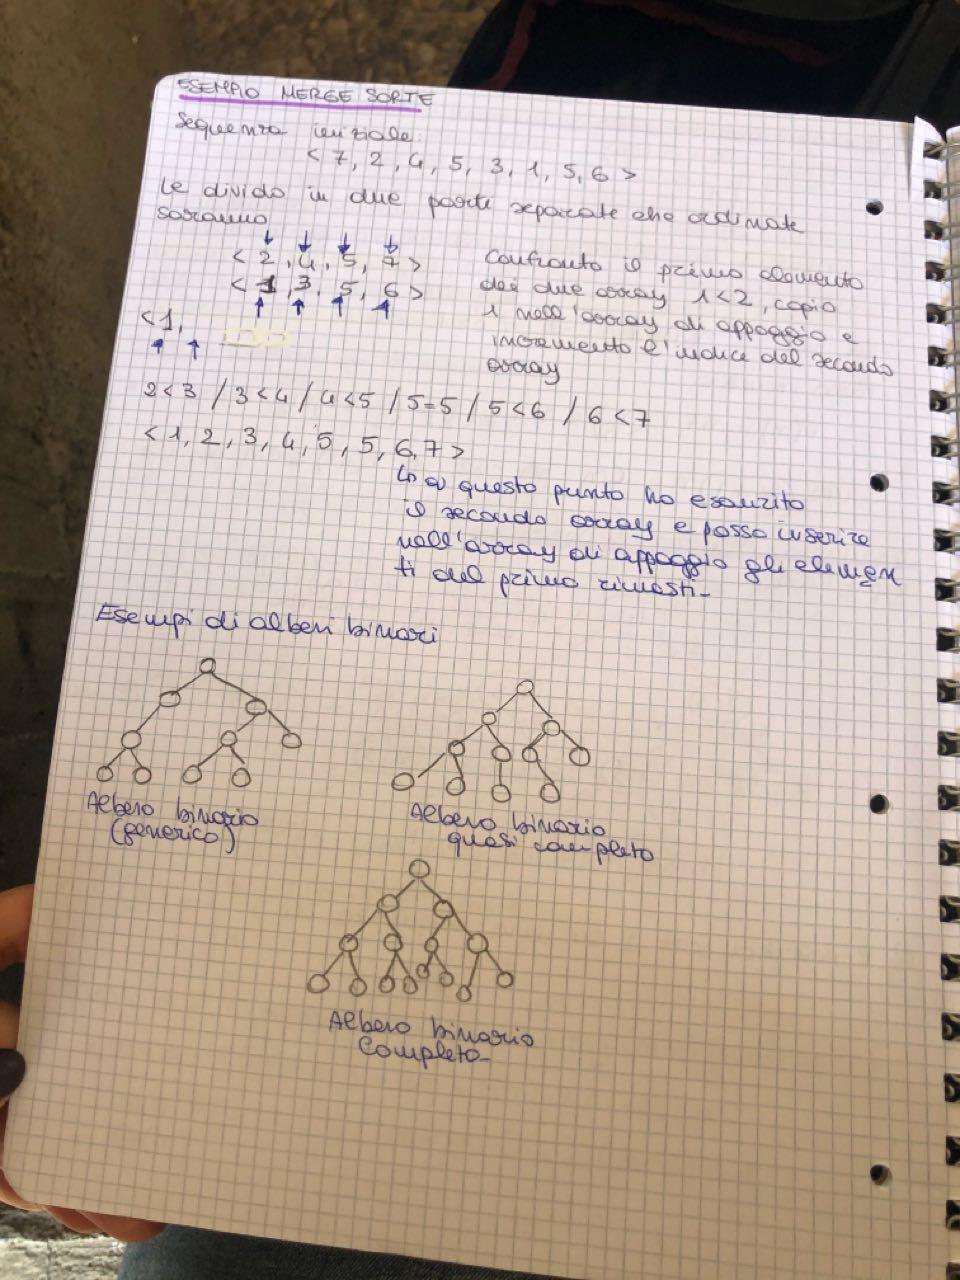 ESEMPIO MERGE SORTE
Sequenza iniziale:
< 7, 2, 4, 5, 3, 1, 5, 6 >
Le divido in due parti separate che ordinate
saranno
< 2, 4, 5, 7 >
< 1, 3, 5, 6 >
< 1,
Confronto il primo elemento
dei due array 1<2, copio
1 nell'array di appoggio e
incremento l'indice del secondo
array
2<3 / 3<4 / 4<5 / 5=5 / 5<6 / 6<7
< 1, 2, 3, 4, 5, 5, 6, 7 >
↳ a questo punto ho esaurito
il secondo array e posso inserire
nell'array di appoggio gli elemen
ti del primo rimasti-
Esempi di alberi binari
Albero binario
(generico)
Albero binario
quasi completo
Albero binario
Completo-